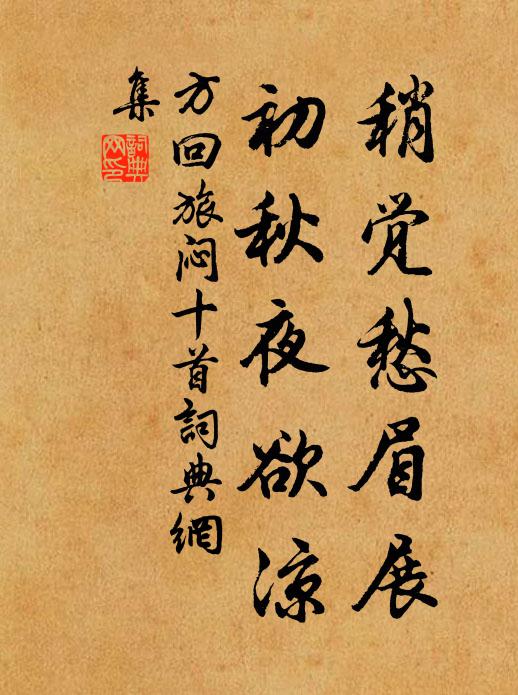 稍觉愁眉展
初秋夜欲凉
方回旅闷十首詞典網
集
詞典網印